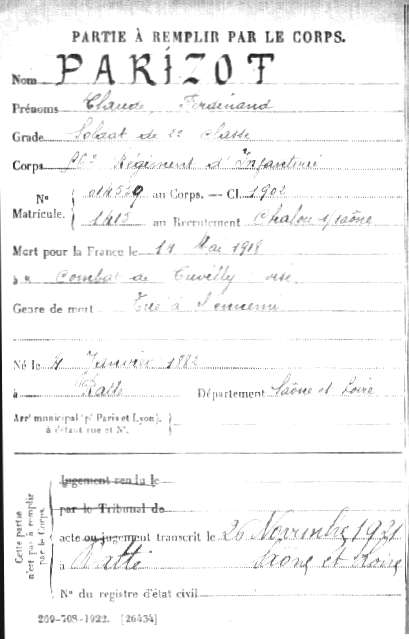 PARTIE À REMPLIR PAR LE CORPS.
Nom PARIZOT
Prénoms Claude, Ferdinand
Grade Soldat de 2e classe
Corps Régiment d'Infanterie
N° 014529 au Corps. — Cl. 1902
Matricule. 1413 au Recrutement Chalon s/saône
Mort pour la France le 11 Mai 1918
à Combat de Cuvilly oise
Genre de mort Tué à l'ennemi
Né le 4 Janvier 1882
à Ratte Département Saône et Loire
Arr' municipal (p' Paris et Lyon).
à défaut rue et N°.
Cette partie
n'est pas à remplir
par le Corps.
Jugement rendu le
par le Tribunal de
acte ou jugement transcrit le 26 Novembre 1921
à Ratte Saône et Loire
N° du registre d'état civil
269-708-1922. [26434]